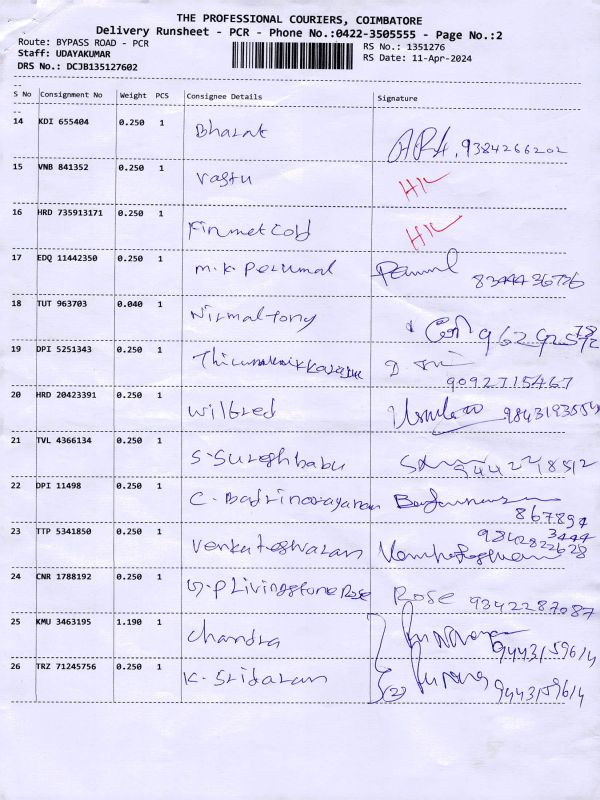 THE PROFESSIONAL COURIERS, COIMBATORE
Delivery Runsheet - PCR - Phone No.:0422-3505555 - Page No.:2
Route: BYPASS ROAD - PCR RS No.: 1351276
Staff: UDAYAKUMAR RS Date: 11-Apr-2024
DRS No.: DCJB135127602
S No Consignment No Weight PCS Consignee Details Signature
14 KDI 655404 0.250 1 Bharat 9384266202
15 VNB 841352 0.250 1 Vastu H/L
16 HRD 735913171 0.250 1 Finmet Cold H/L
17 EDQ 11442350 0.250 1 M.K Perumal 8344436726
18 TUT 963703 0.040 1 Nirmaltony
19 DPI 5251343 0.250 1
9092715467
20 HRD 20423391 0.250 1 Wilfred 9843193554
21 TVL 4366134 0.250 1 S-Sureshbabu
22 DPI 11498 0.250 1 C. Badrinarayanan
867894
3444
23 TTP 5341850 0.250 1 Venkateswaran 9842822628
24 CNR 1788192 0.250 1 G.P Livingstone Rose Rose 9342287087
25 KMU 3463195 1.190 1 Chandra
9443159614
26 TRZ 71245756 0.250 1 K. Sridaran (2) 9443159614